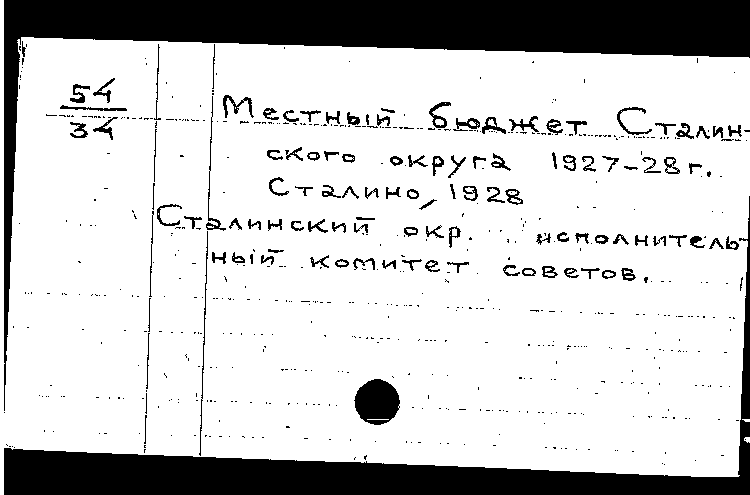 54
34
Местный бюджет Сталин-
ского округа 1927-28 г.
Сталино, 1928
Сталинский окр. исполнитель-
ный комитет советов.